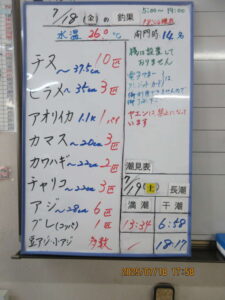 7/18(金)の釣果
5:00~19:00
水温 26.0℃
開門時 14名
チヌ ~37.5cm 10匹
ヒラメ ~35cm 3匹
アオリイカ 1.1K 1パイ
カマス ~20cm 3匹
カワハギ ~22cm 2匹
チャリコ ~22cm 3匹
アジ ~28cm 6匹
グレ(コッパ) 1匹
豆アジ・小アジ 多数
おりません
ヤエンは禁止になって
います
潮見表
7/19(土) 長潮
満潮 干潮
13:34 6:58
18:17
2025/07/18 17:58